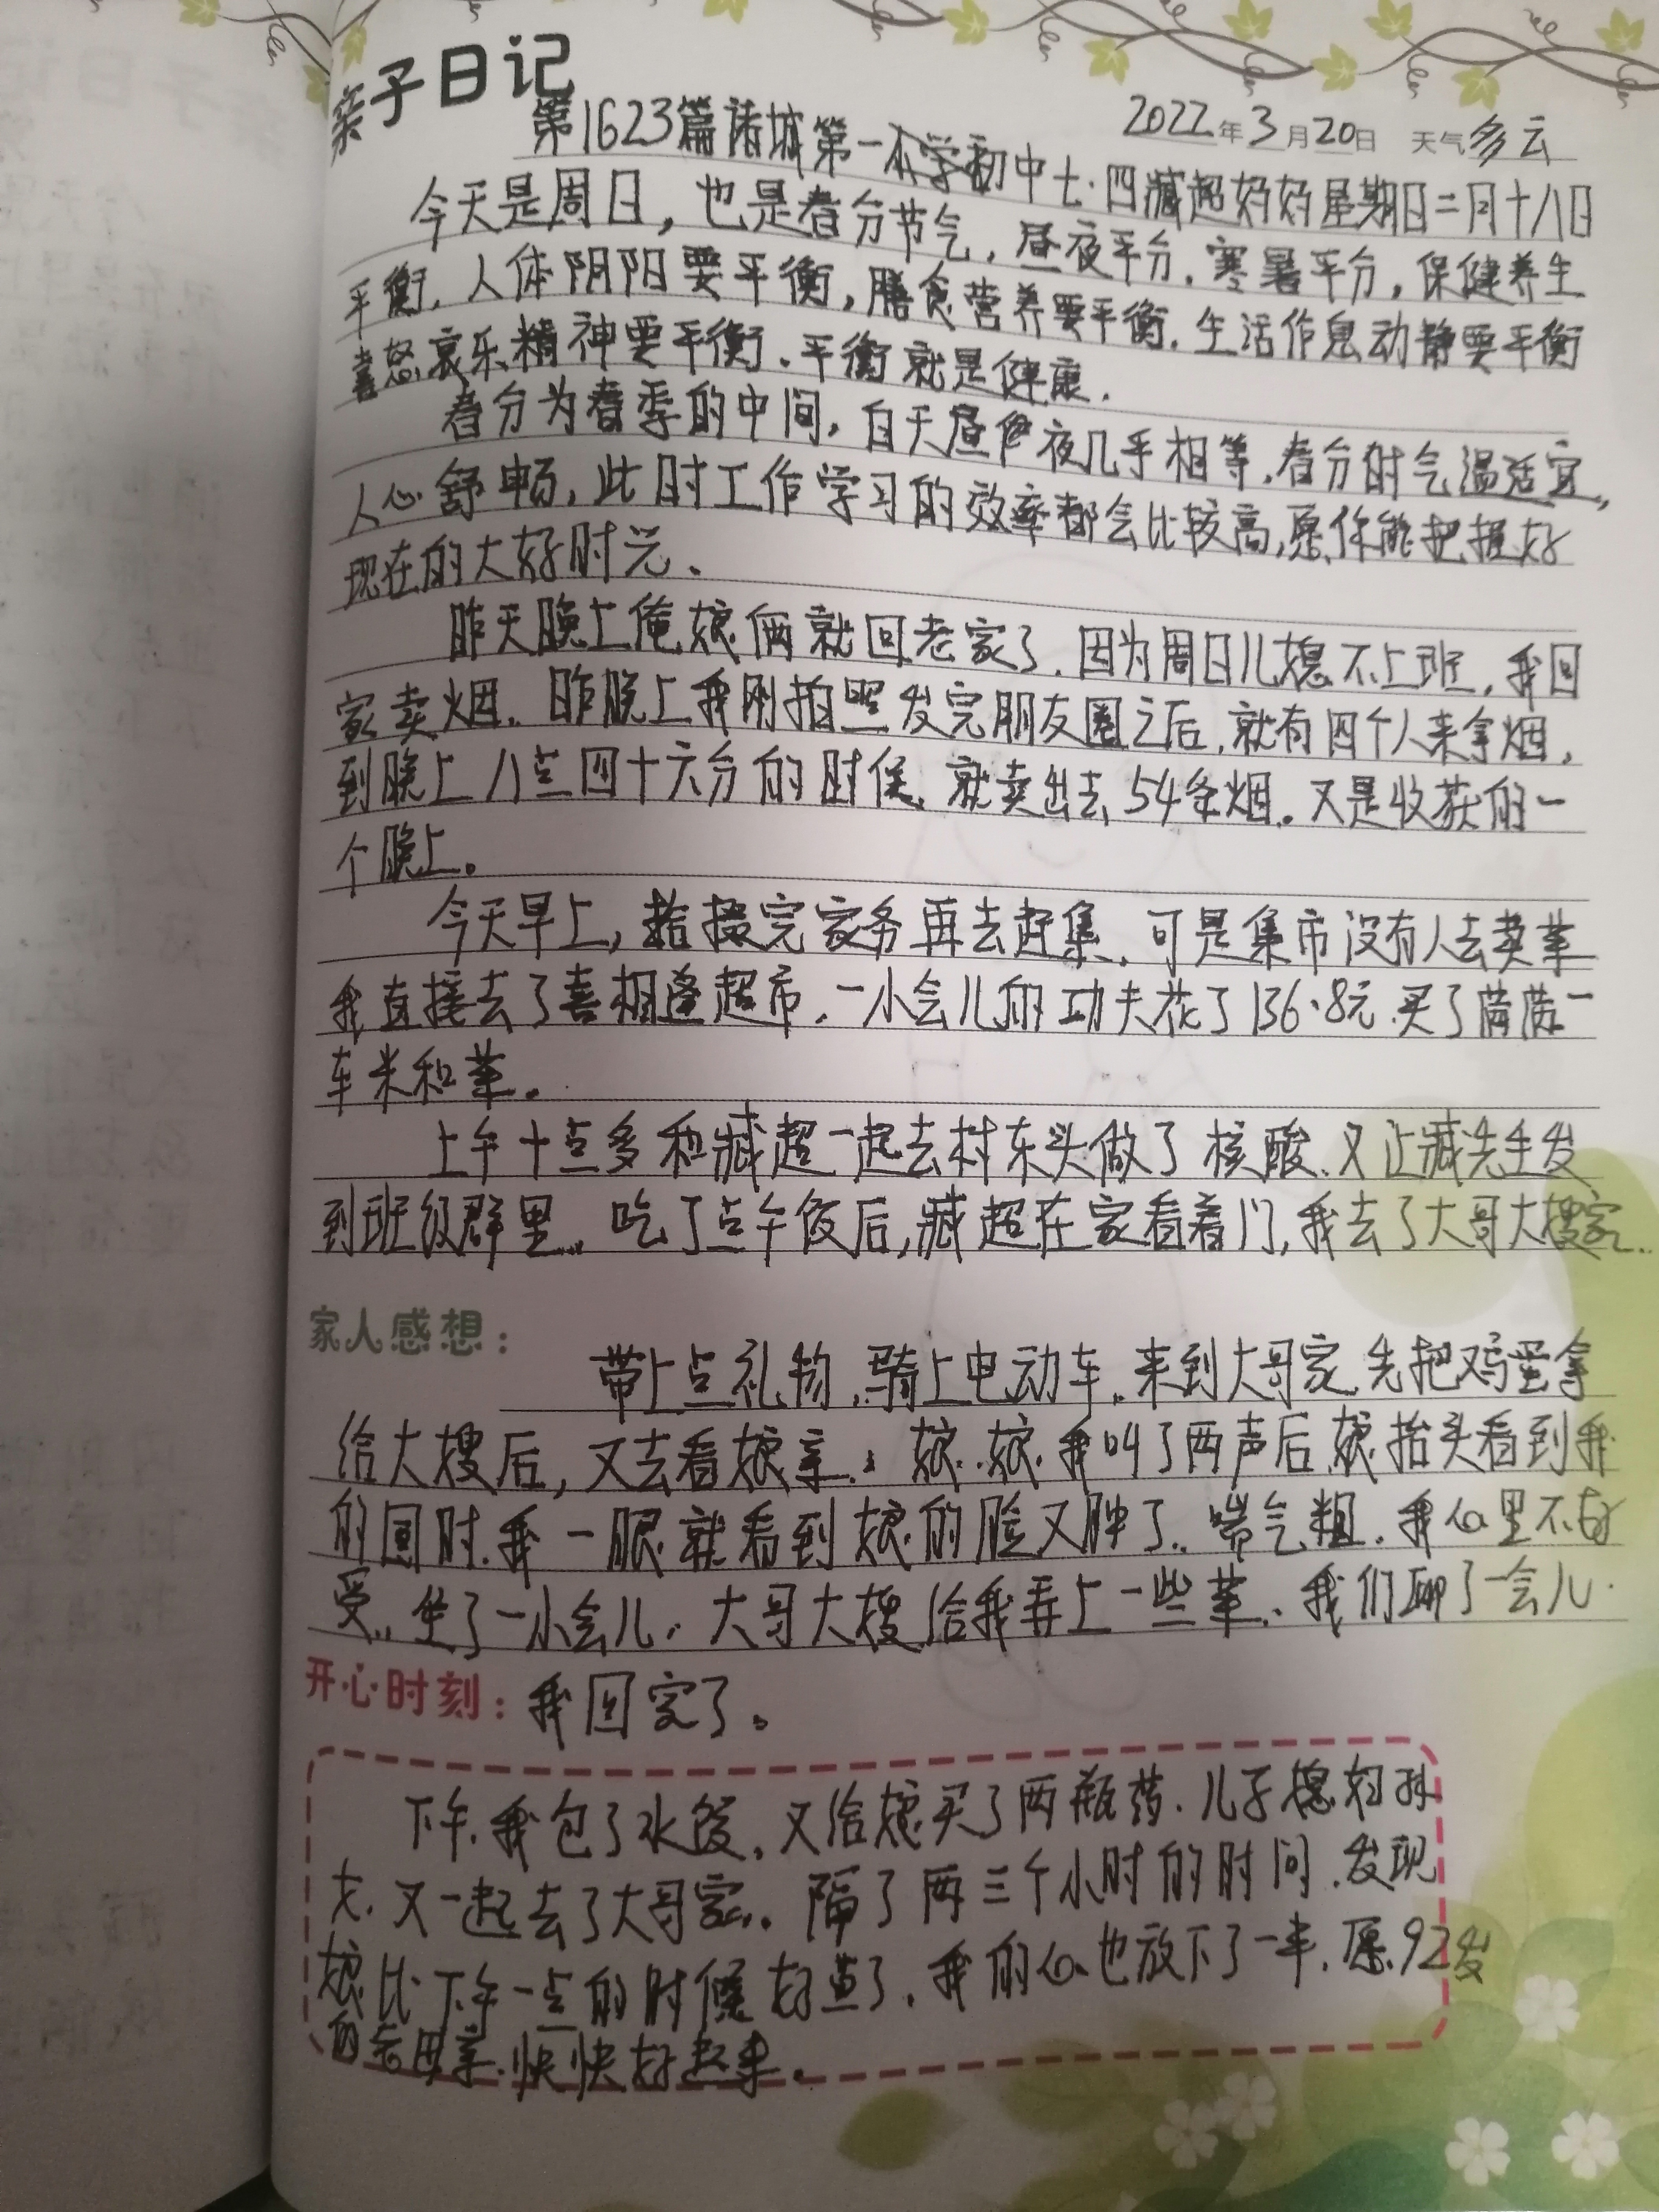 亲子日记
2022年3月20日 天气多云
第1623篇诸城第一初中七·四臧超妈妈星期日二月十八日
今天是周日，也是春分节气，昼夜平分，寒暑平分，保健养生
平衡，人体阴阳要平衡，膳食营养要平衡，生活作息动静要平衡
喜怒哀乐精神要平衡、平衡就是健康。
春分为春季的中间，白天昼夜几乎相等，春分时气温适宜，
人心舒畅，此时工作学习的效率都会比较高，愿你能把握好
现在的大好时光、
昨天晚上俺娘俩就回老家了，因为周日儿媳不上班，我回
家卖烟，昨晚上我刚拍照发完朋友圈之后，就有四个人来拿烟，
到晚上八点四十六分的时候，就卖出去54条烟。又是收获的一
个晚上。
今天早上，拾掇完家务再去赶集，可是集市没有人去卖菜
我直接去了喜相逢超市，一小会儿的功夫花了136·8元，买了满满一
车米和菜。
上午十点多和臧超一起去村东头做了核酸，又让臧先生发
到班级群里，吃了点午饭后，臧超在家看着门，我去了大哥大嫂家..
家人感想：
带上点礼物，骑上电动车，来到大哥家，先把鸡蛋拿
给大嫂后，又去看娘亲，娘..娘，我叫了两声后，娘抬头看到我
的同时，我一眼就看到娘的脸又肿了，喘气粗，我心里不好
受，坐了一小会儿，大哥大嫂给我弄上一些菜，我们聊了一会儿.
开心时刻：我回家了。
下午，我包了水饺，又给娘买了两瓶药，儿子媳妇孙
女，又一起去了大哥家，隔了两三个小时的时间，发现
娘比下午一点的时候好点了，我的心也放下了一半，愿92岁
的老母亲，快快好起来。